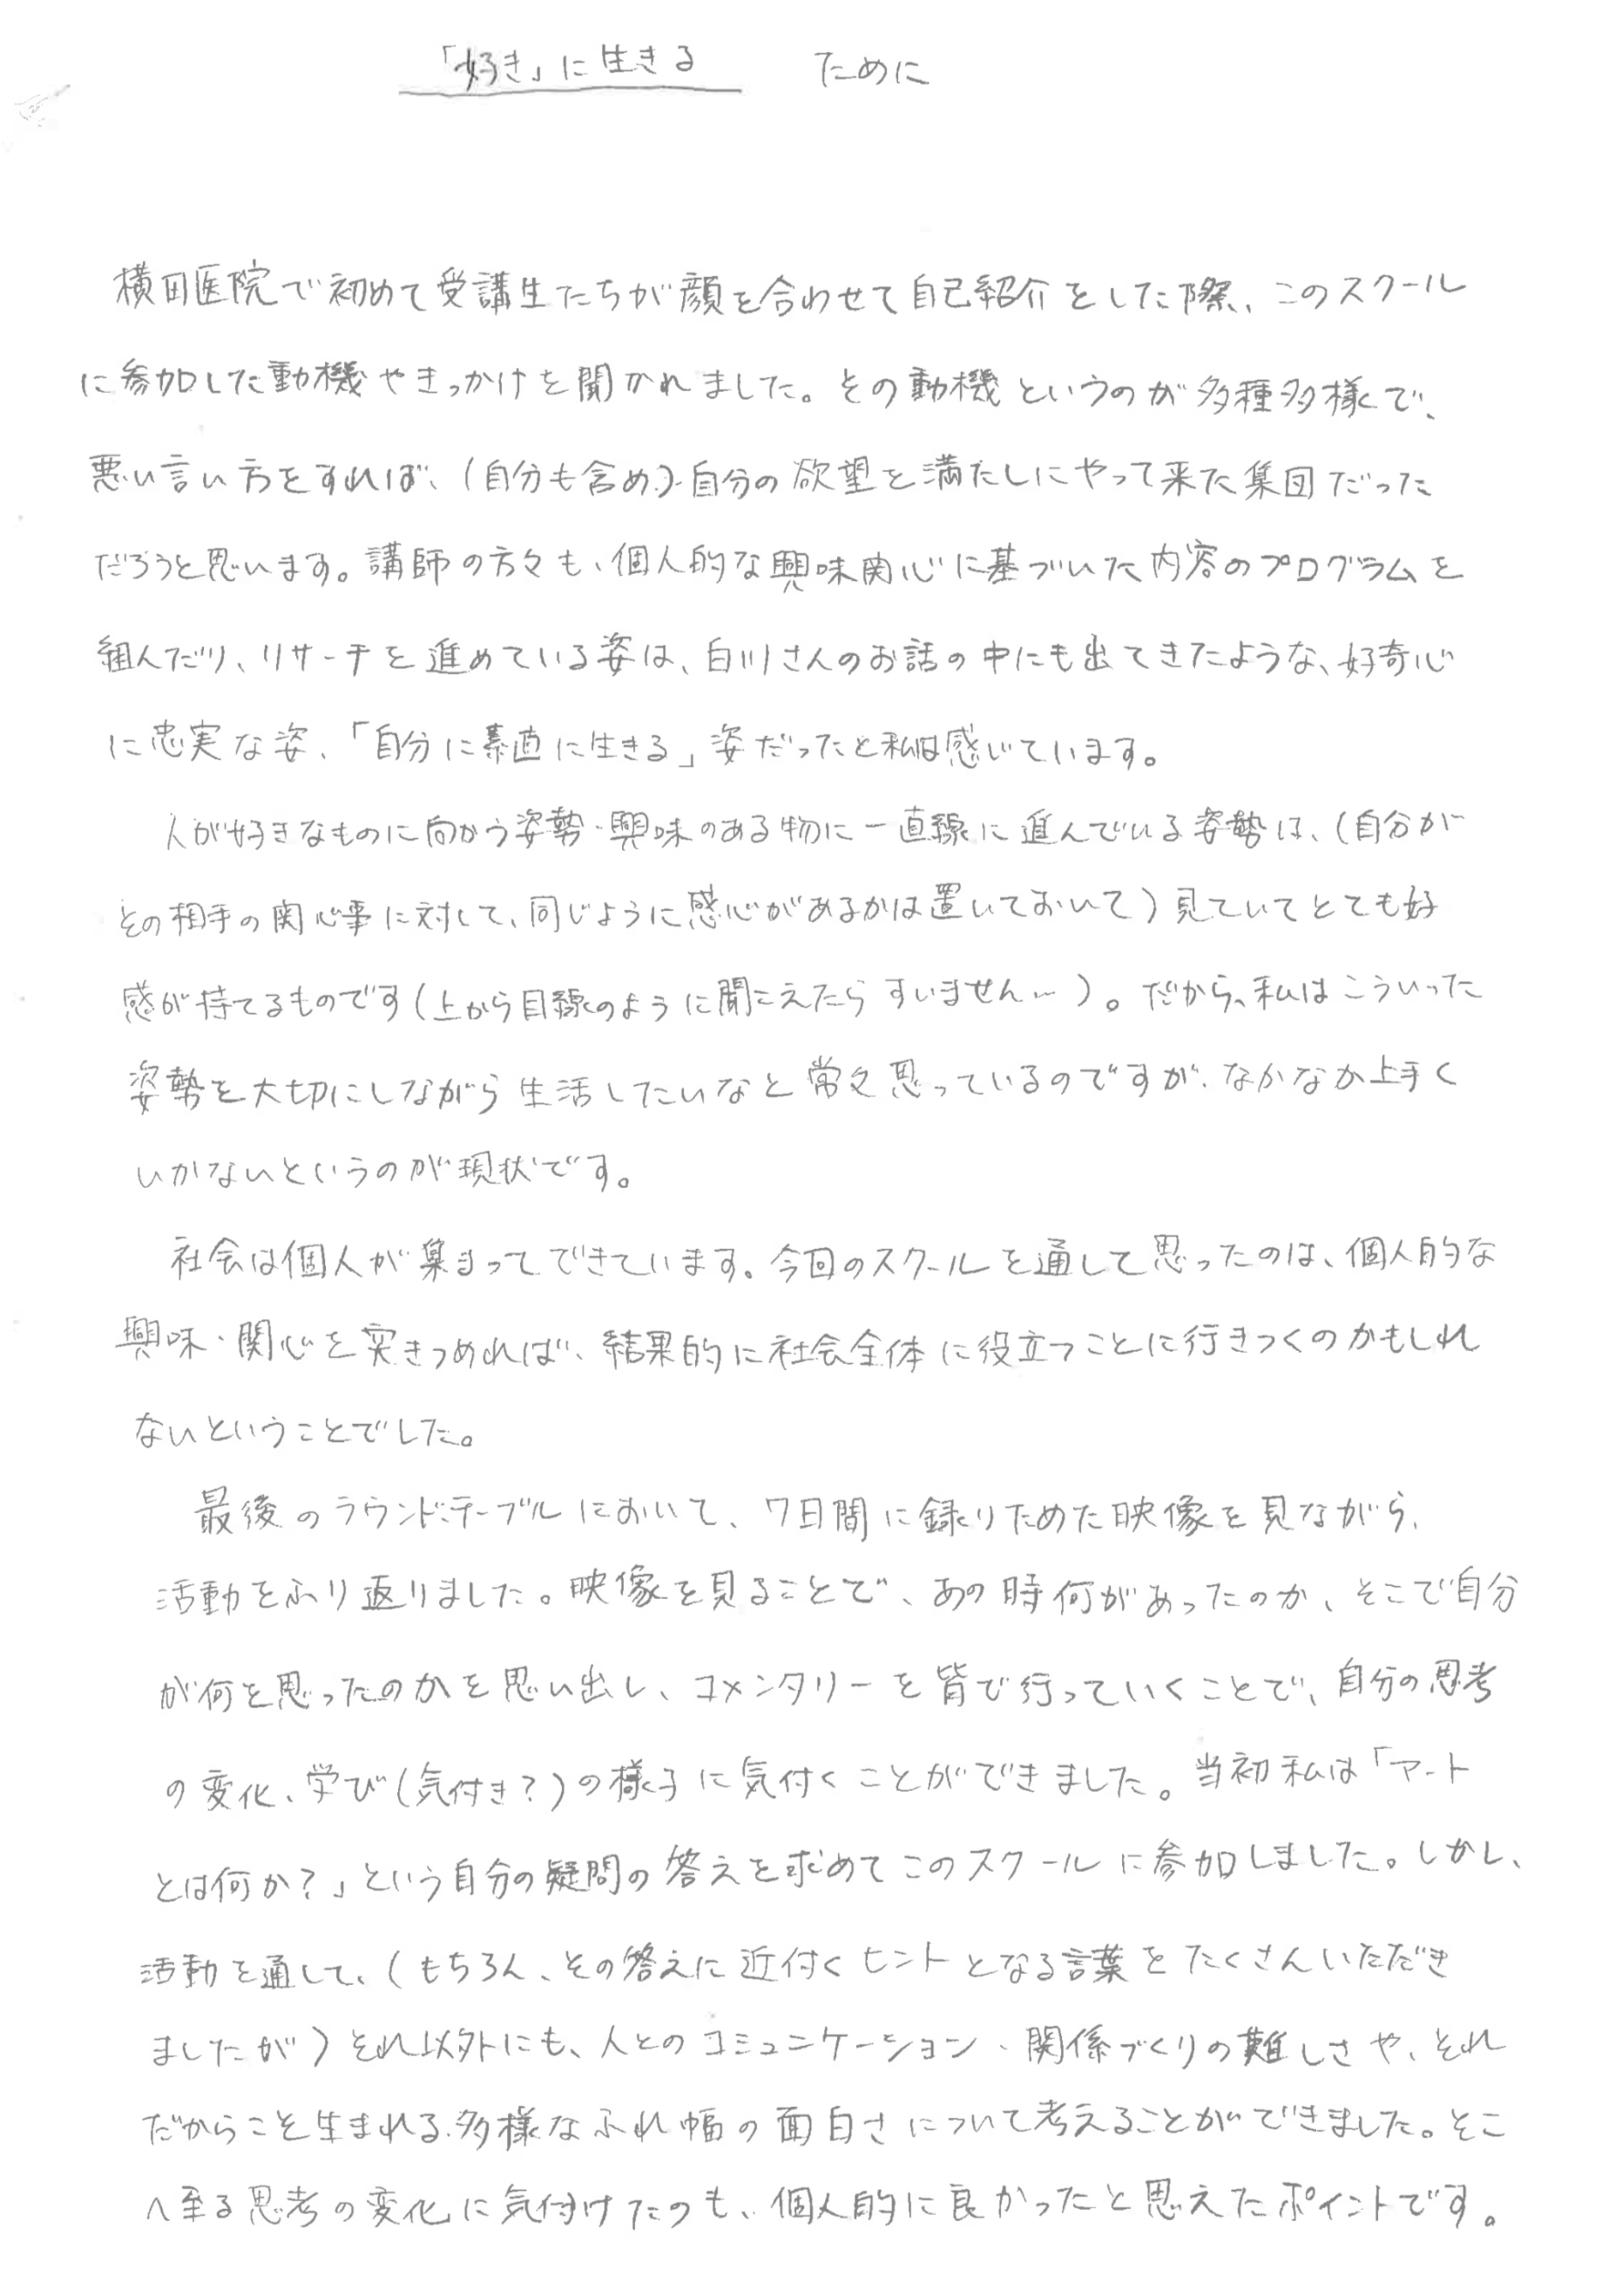 「好き」に生きる　ために
横田医院で初めて受講生たちが顔を合わせて自己紹介をした際、このスクール
に参加した動機やきっかけを聞かれました。その動機というのが多種多様で、
悪い言い方をすれば、(自分も含め)自分の欲望を満たしにやって来た集団だった
だろうと思います。講師の方々も、個人的な興味関心に基づいた内容のプログラムを
組んだり、リサーチを進めている姿は、白川さんのお話の中にも出てきたような、好奇心
に忠実な姿、「自分に素直に生きる」姿だったと私は感じています。
人が好きなものに向かう姿勢・興味のある物に一直線に進んでいる姿勢は、(自分が
その相手の関心事に対して、同じように感心があるかは置いておいて)見ていてとても好
感が持てるものです(上から目線のように聞こえたらすいません…)。だから、私はこういった
姿勢を大切にしながら生活したいなと常々思っているのですが、なかなか上手く
いかないというのが現状です。
社会は個人が集まってできています。今回のスクールを通して思ったのは、個人的な
興味・関心を突きつめれば、結果的に社会全体に役立つことに行きつくのかもしれ
ないということでした。
最後のラウンドテーブルにおいて、7日間に録りためた映像を見ながら、
活動をふり返りました。映像を見ることで、あの時何があったのか、そこで自分
が何を思ったのかを思い出し、コメンタリーを皆で行っていくことで、自分の思考
の変化、学び(気付き?)の様子に気付くことができました。当初私は「アート
とは何か?」という自分の疑問の答えを求めてこのスクールに参加しました。しかし、
活動を通して、(もちろん、その答えに近付くヒントとなる言葉をたくさんいただき
ましたが)それ以外にも、人とのコミュニケーション・関係づくりの難しさや、それ
だからこそ生まれる多様なふれ幅の面白さについて考えることができました。そこ
へ至る思考の変化に気付けたのも、個人的に良かったと思えたポイントです。